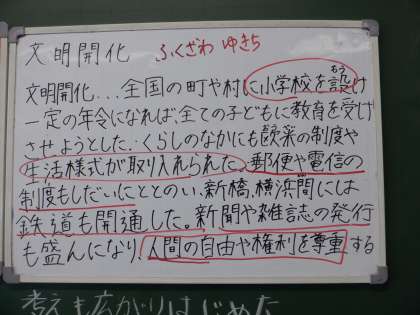 文明開化 ふくざわ ゆきち
文明開化...全国の町や村に小学校を設(もう)け
一定の年令になれば、全ての子どもに教育を受け
させようとした。くらしのなかにも欧米の制度や
生活様式が取り入れられた。郵便や電信の
制度もしだいにととのい、新橋、横浜間には
鉄道も開通した。新聞や雑誌の発行
も盛んになり、人間の自由や権利を尊重する
考えも広がりはじめた